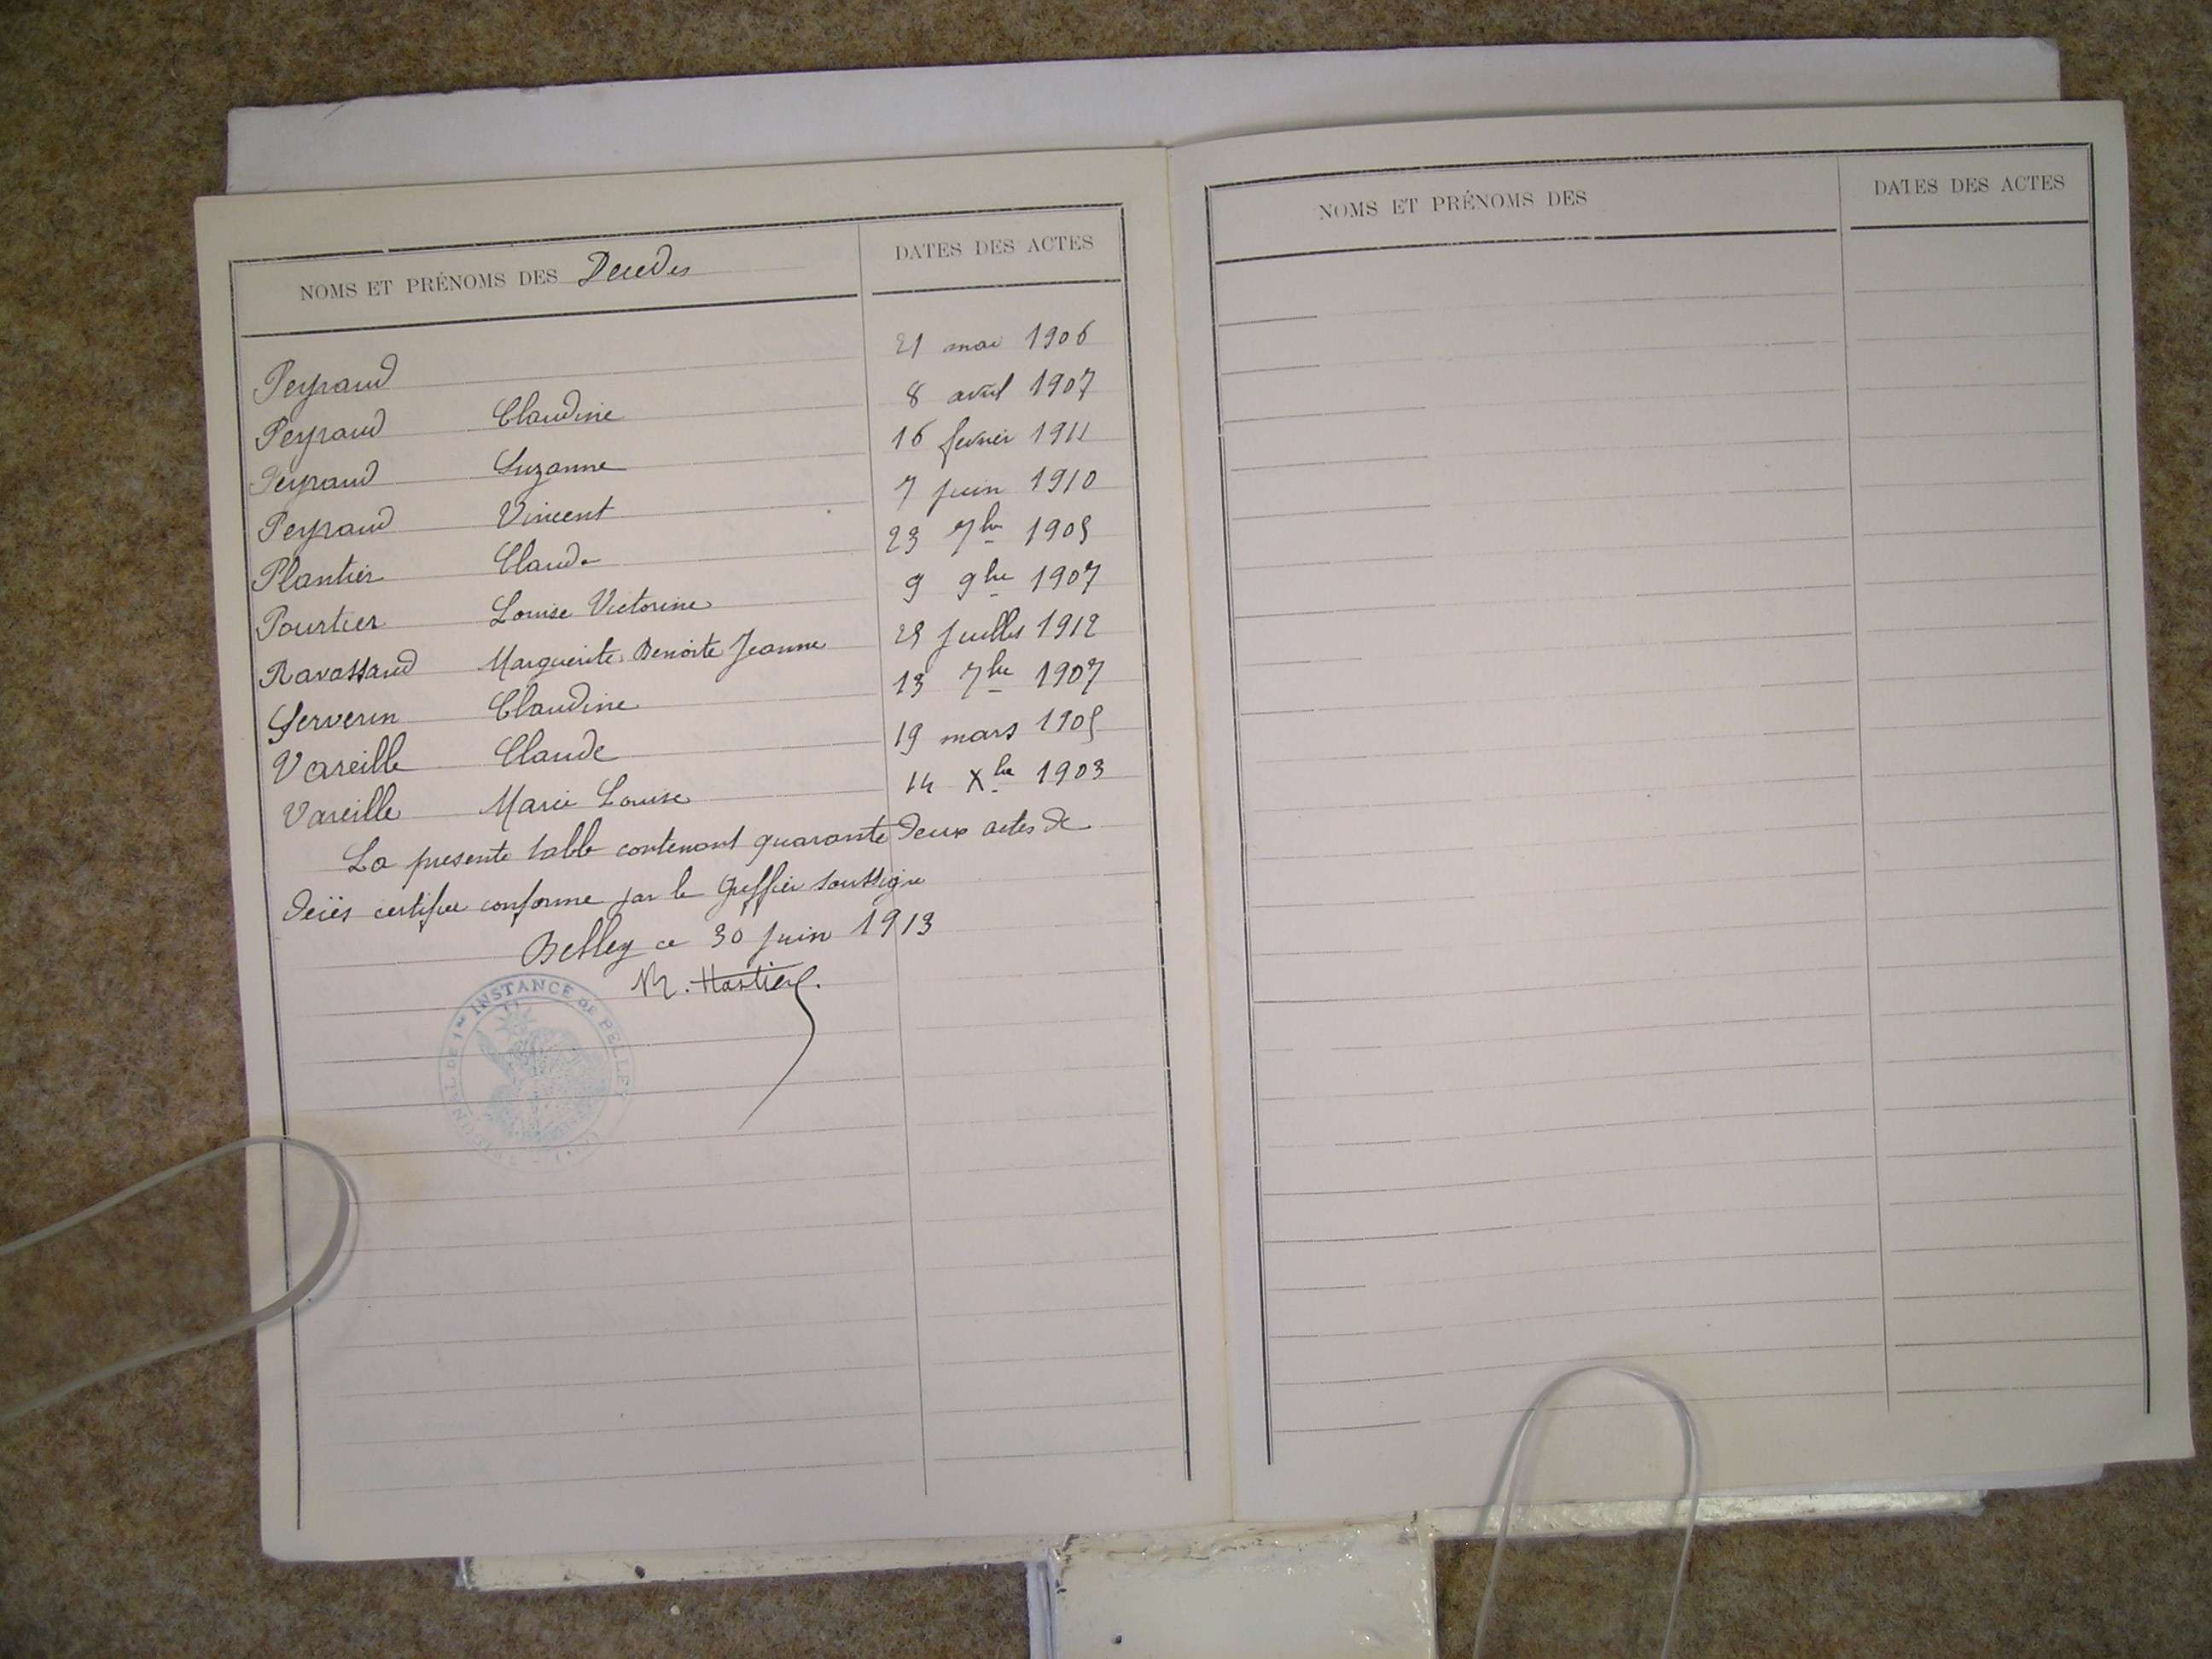 NOMS ET PRÉNOMS DES Décédés DATES DES ACTES
Peyraud 21 mai 1906
Peyraud Claudine 8 avril 1907
Peyraud Suzanne 16 fevrier 1911
Peyraud Vincent 7 juin 1910
Plantier Claude 23 7bre 1905
Pourtier Louise Victorine 9 9bre 1907
Ravassaud Marguerite Benoite Jeanne 25 juillet 1912
Serverin Claudine 13 7bre 1907
Vareille Claude 19 mars 1905
Vareille Marie Louise 14 Xbre 1903
La presente table contenant quarante deux actes de
decès certifiée conforme par le Greffier soussigné
Belley ce 30 juin 1913
TRIBUNAL DE 1re INSTANCE DE BELLEY
NOMS ET PRÉNOMS DES DATES DES ACTES